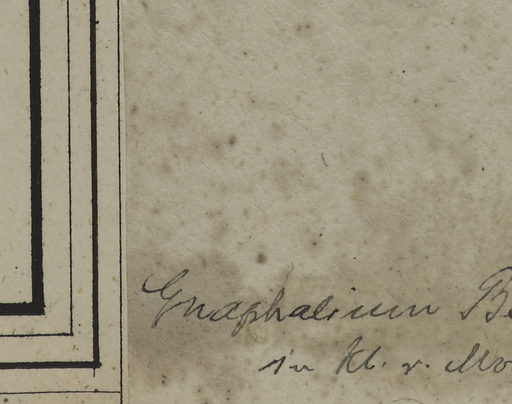 Gnaphalium Be
in Kl. v. Mo